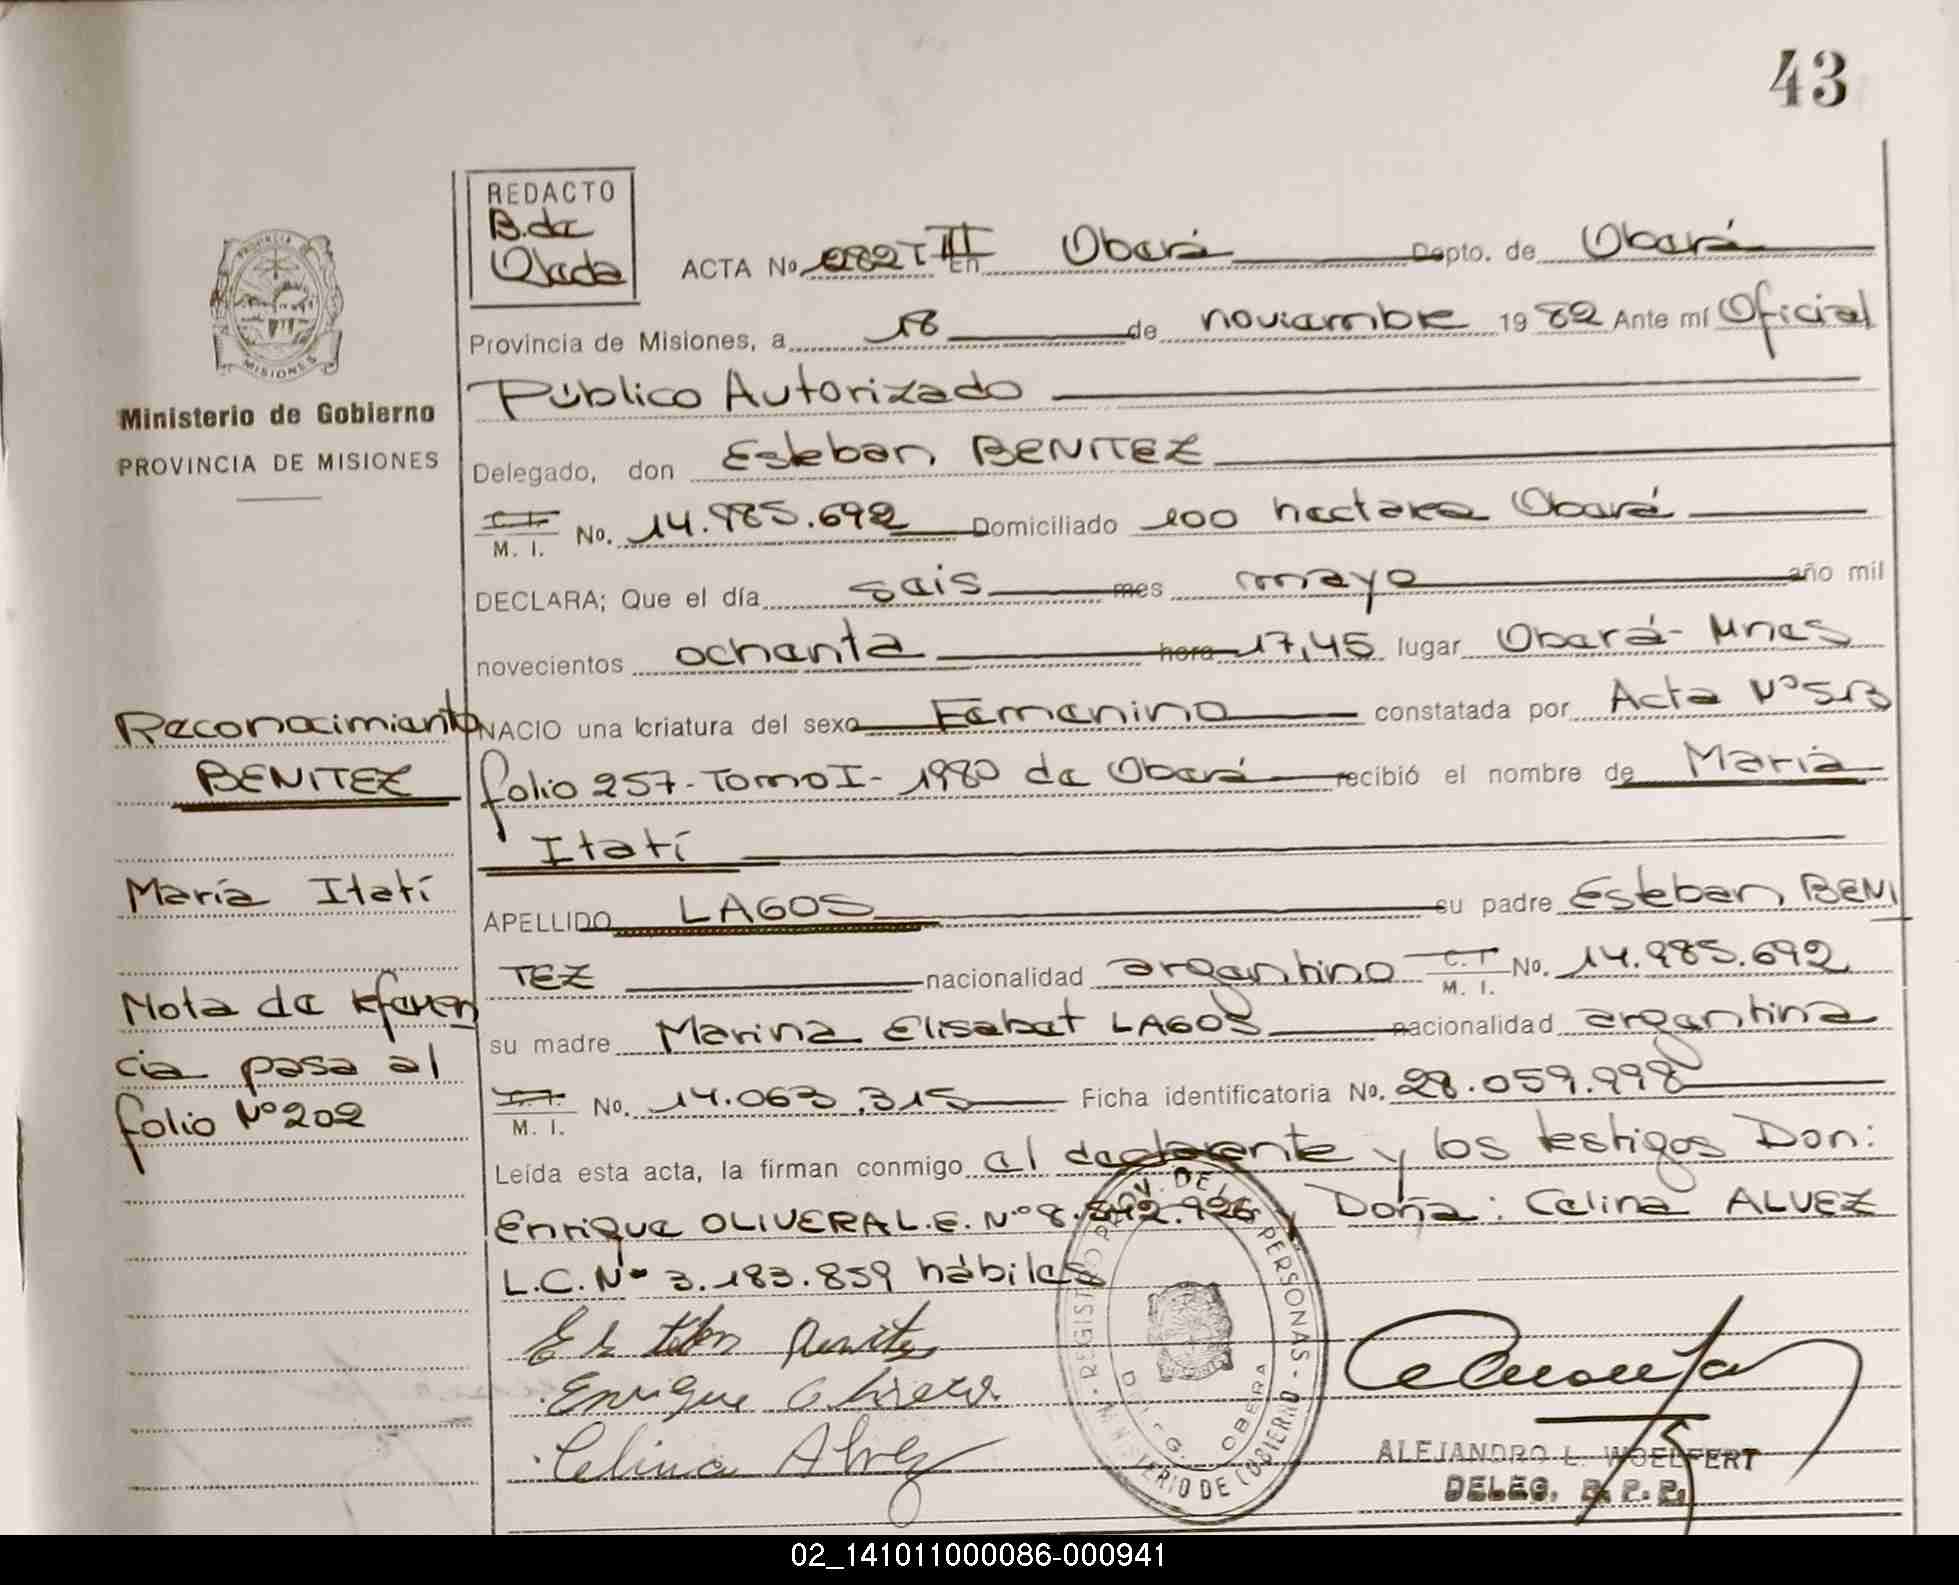 43
REDACTO
B. de
PROVINCIA DE
MISIONES
ACTA No 082 T II En Oberá Depto. de Oberá
Provincia de Misiones, a 18 de noviembre 1982 Ante mí Oficial
Público Autorizado
Ministerio de Gobierno
PROVINCIA DE MISIONES
Delegado, don Esteban BENITEZ
C.I. M. I. No. 14.985.692 Domiciliado 100 hectarea Oberá
DECLARA; Que el día seis mes mayo año mil
novecientos ochenta hora 17,45 lugar Oberá-Mnes
NACIO una criatura del sexo Femenino constatada por Acta Nº 513
folio 257-Tomo I-1980 de Oberá recibió el nombre de María
Itatí
APELLIDO LAGOS su padre Esteban BENI
TEZ nacionalidad argentino C.I. M. I. No. 14.985.692
su madre Marina Elisabet LAGOS nacionalidad argentina
C.I. M. I. No. 14.063.315 Ficha identificatoria No. 28.059.998
Leída esta acta, la firman conmigo el declarante y los testigos Don:
Enrique OLIVERA L.E. Nº 8.542.926 y Doña: Celina ALVEZ
L.C. Nº 3.183.859 hábiles
Reconocimiento
BENITEZ
María Itatí
Nota de referen
cia pasa al
folio Nº 202
Esteban Benitez
Enrique Olivera
Celina Alvez
REGISTRO PROV. DE LAS PERSONAS - MINISTERIO DE GOBIERNO
DELEG. OBERA
ALEJANDRO L. WOELFERT
DELEG. R. P. P.
02_141011000086-000941